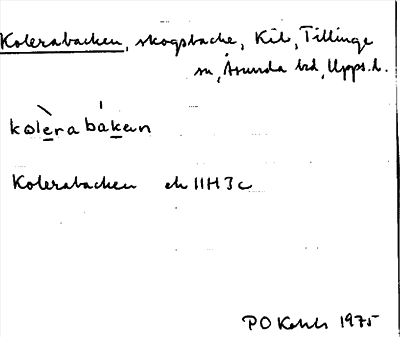 Kolerabacken, skogsbacke, Kil, Tillinge
sn, Åsunda hd, Upps. l.
kolèra bákɐn
Kolerabacken ek 11H3c
PO 1975